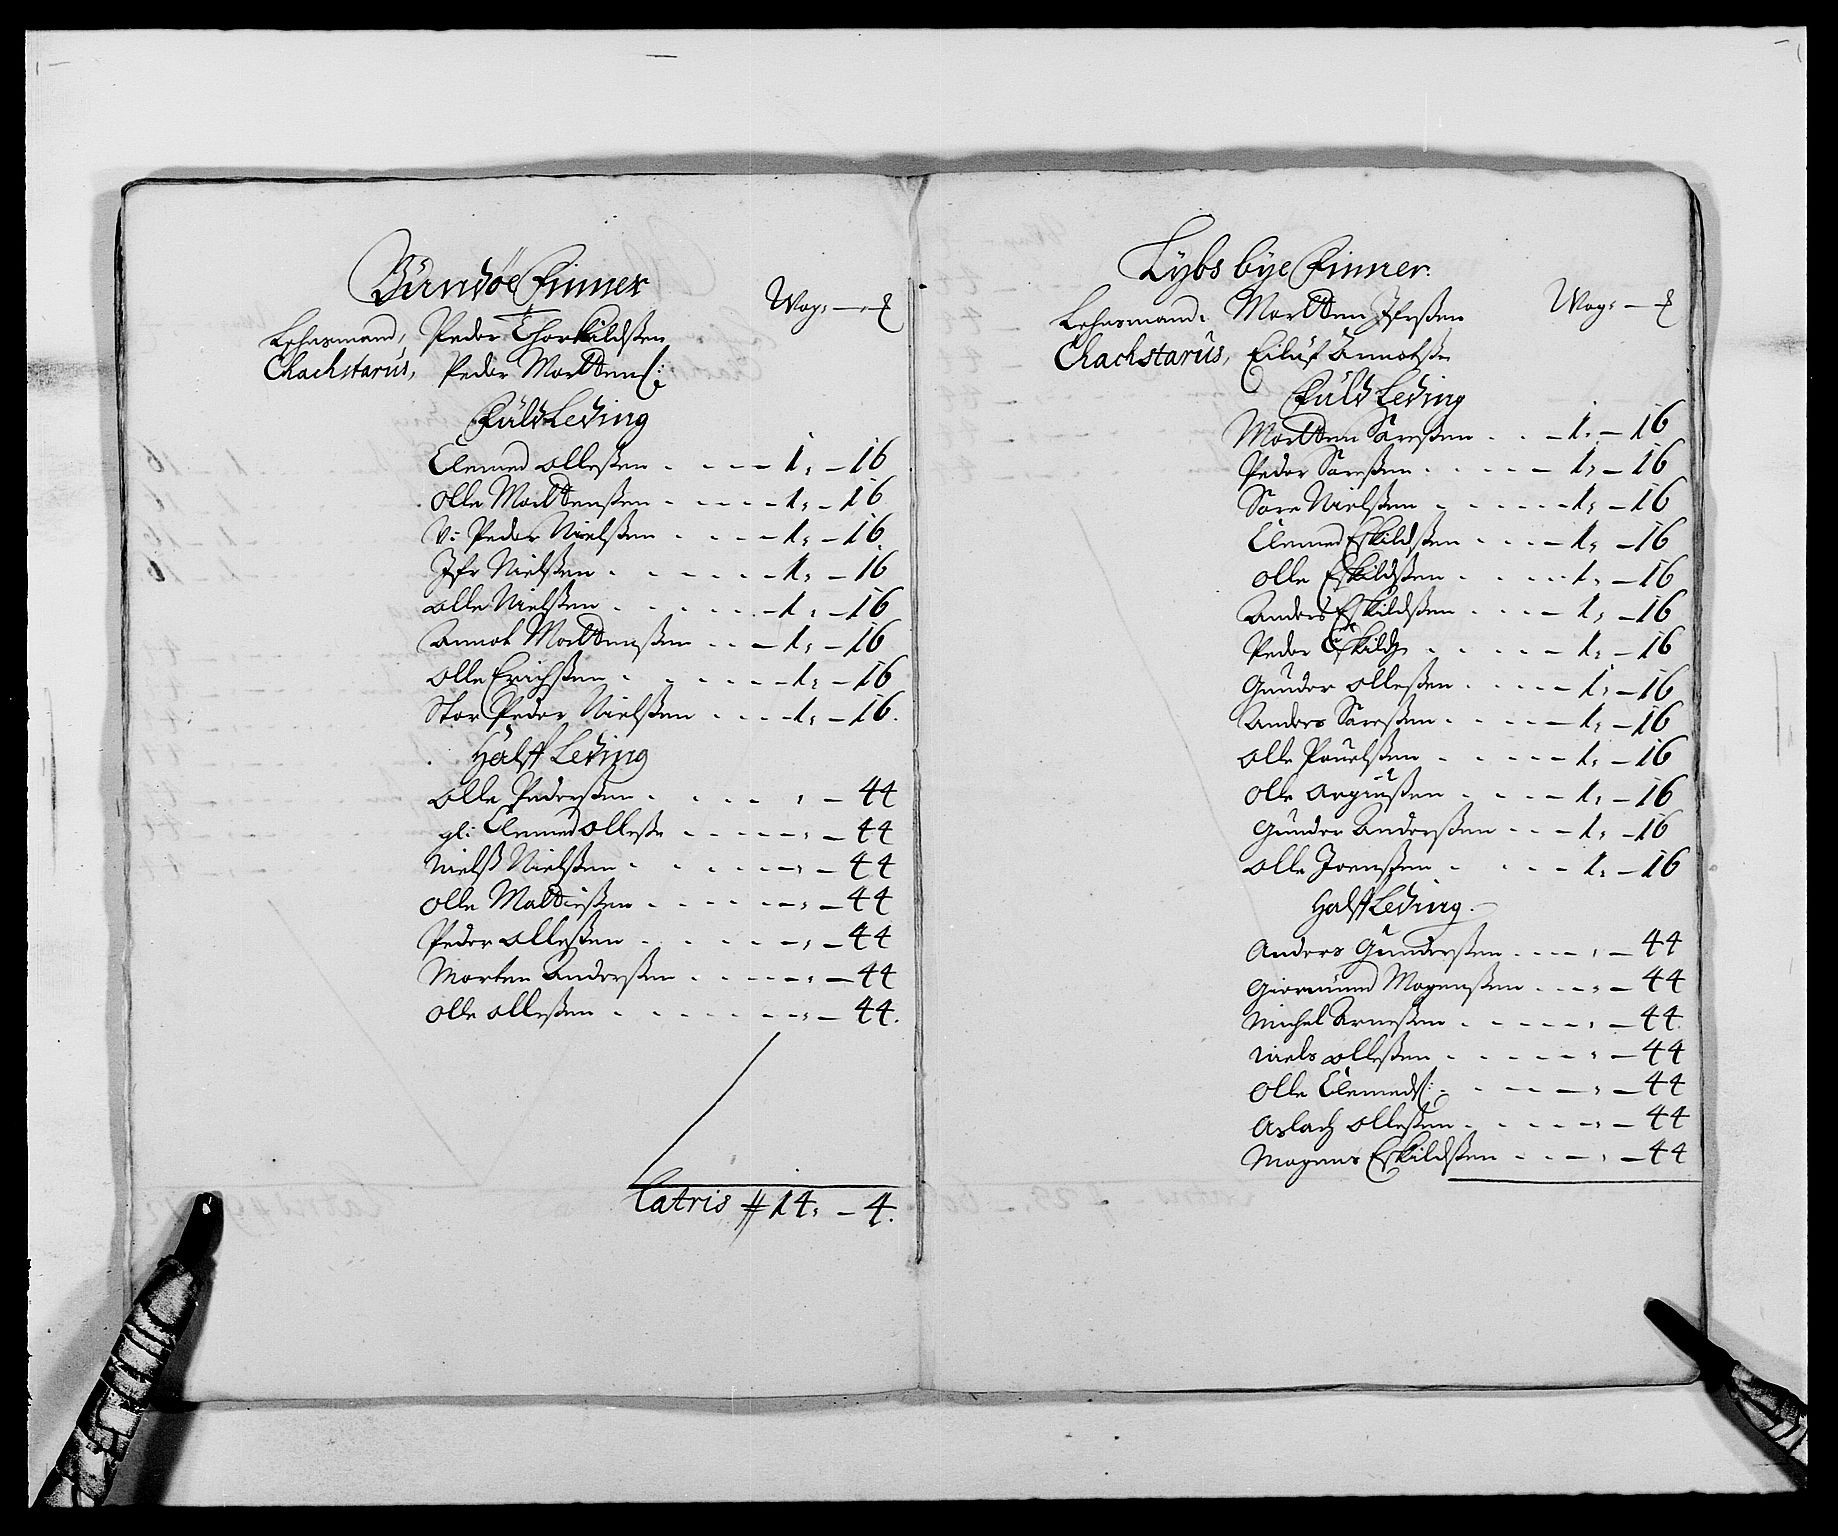 Gundsøe Finner
Wog: — ℔
Lehnsmand, Peder Thorkildssen
Chachstarus, Peder Morttens:
Fuld Leding
Clemed ollessen . - - - 1: - 16
Olle Morttenssen - - - - 1: - 16
V: Peder Nielssen - - - - 1: - 16
Ifr Nielssen - - - - - 1: - 16
olle Nielssen - - - - - 1: - 16
Annok Morttenssen - - - 1: - 16
olle Erichssen - - - - - 1: - 16
Stor Peder Nielssen - - - 1: - 16.
Halff Leding
olle Pederssen - - - - : - 44
gl: Clemed ollesse - - - - : - 44
Nielss Nielssen - - - - - : - 44
olle Mattissen - - - - - : - 44
Peder ollessen - - - - - : - 44
Morten Anderssen - - - - : - 44
olle ollessen - - - - - - : - 44.
Latris # 14: - 4.
Kybs bye Finner.
Wog: — ℔
Lehnsmand: Mortten Ifrssen
Chachstarus, Eiluf Annokss
Fuld Leding
Mortten Saressen - - - 1: - 16
Peder Saressen - - - - 1: - 16
Sare Nielssen - - - - - 1: - 16
Clemed Eskildssen - - - 1: - 16
olle Eskildssen - - - - 1: - 16
Anders Eskildssen - - - 1: - 16
Peder Eskilds - - - - - 1: - 16
Gunder ollessen - - - - 1: - 16
Anders Saressen - - - - 1: - 16
olle Pouelssen - - - - - 1: - 16
olle - - - - 1: - 16
Gunder Anderssen - - - 1: - 16
olle Joenssen - - - - 1: - 16
Halff Leding.
Anders Gunderssen - - - : - 44
Giermund Mogenssen - - - : - 44
Michel Arnessen - - - - - : - 44
Niels ollessen - - - - - : - 44
olle Clemeds: - - - - - : - 44
Aslach ollessen - - - - - : - 44
Mogens Eskildssen - - - : - 44